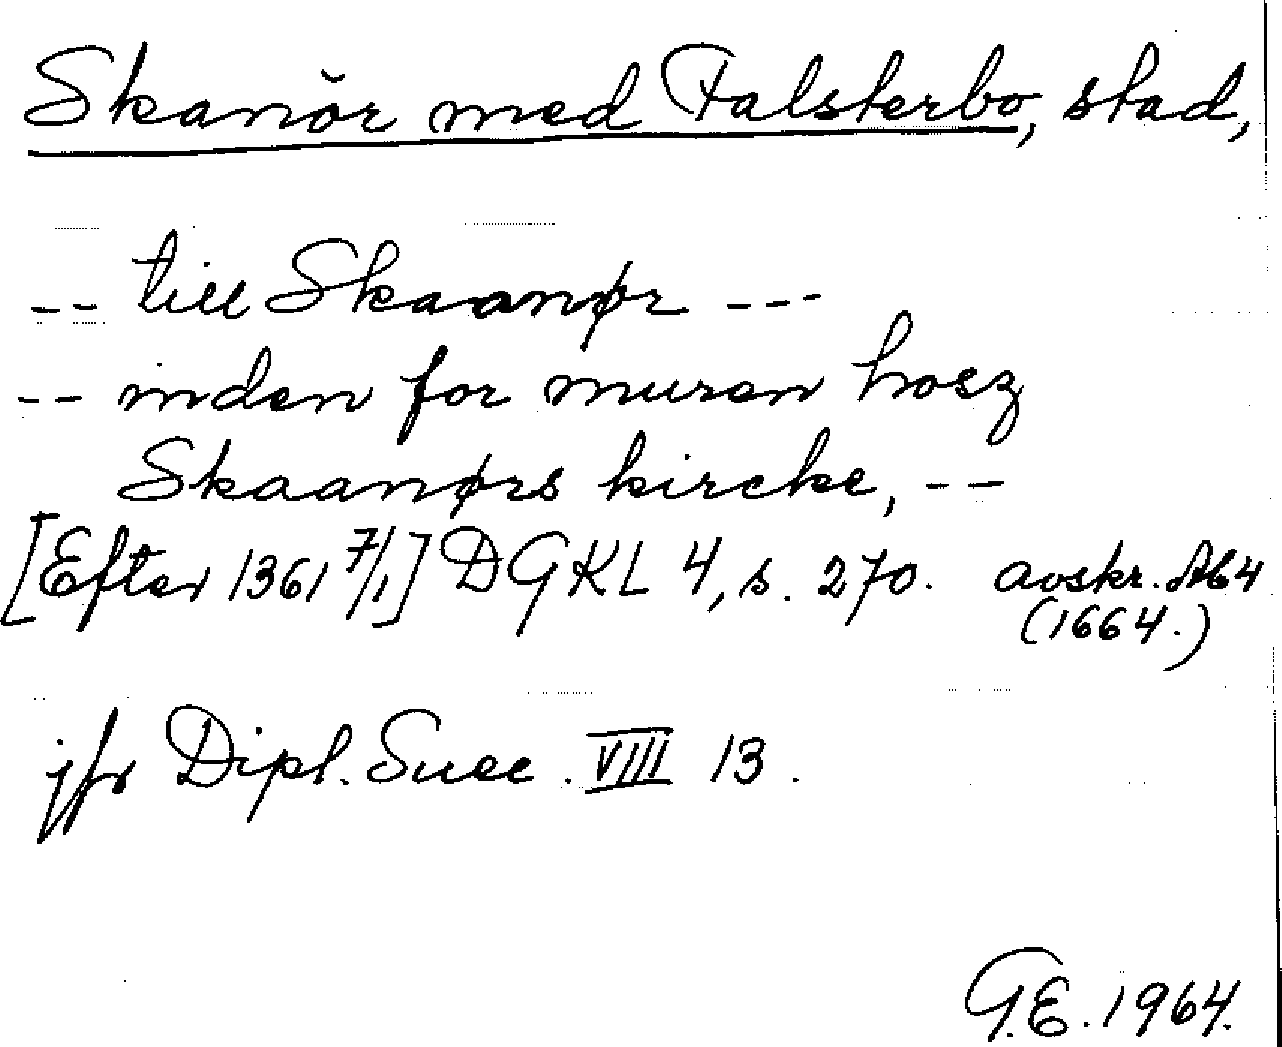 Skanör med Falsterbo, stad,
-- till Skaanør ---
-- inden for muren hosz
Skaanørs kircke, --
[Efter 1361 7/1] DGKL 4, s. 270. avskr. A64
(1664.)
jfr Dipl. Suec. VIII 13.
G.E. 1964.